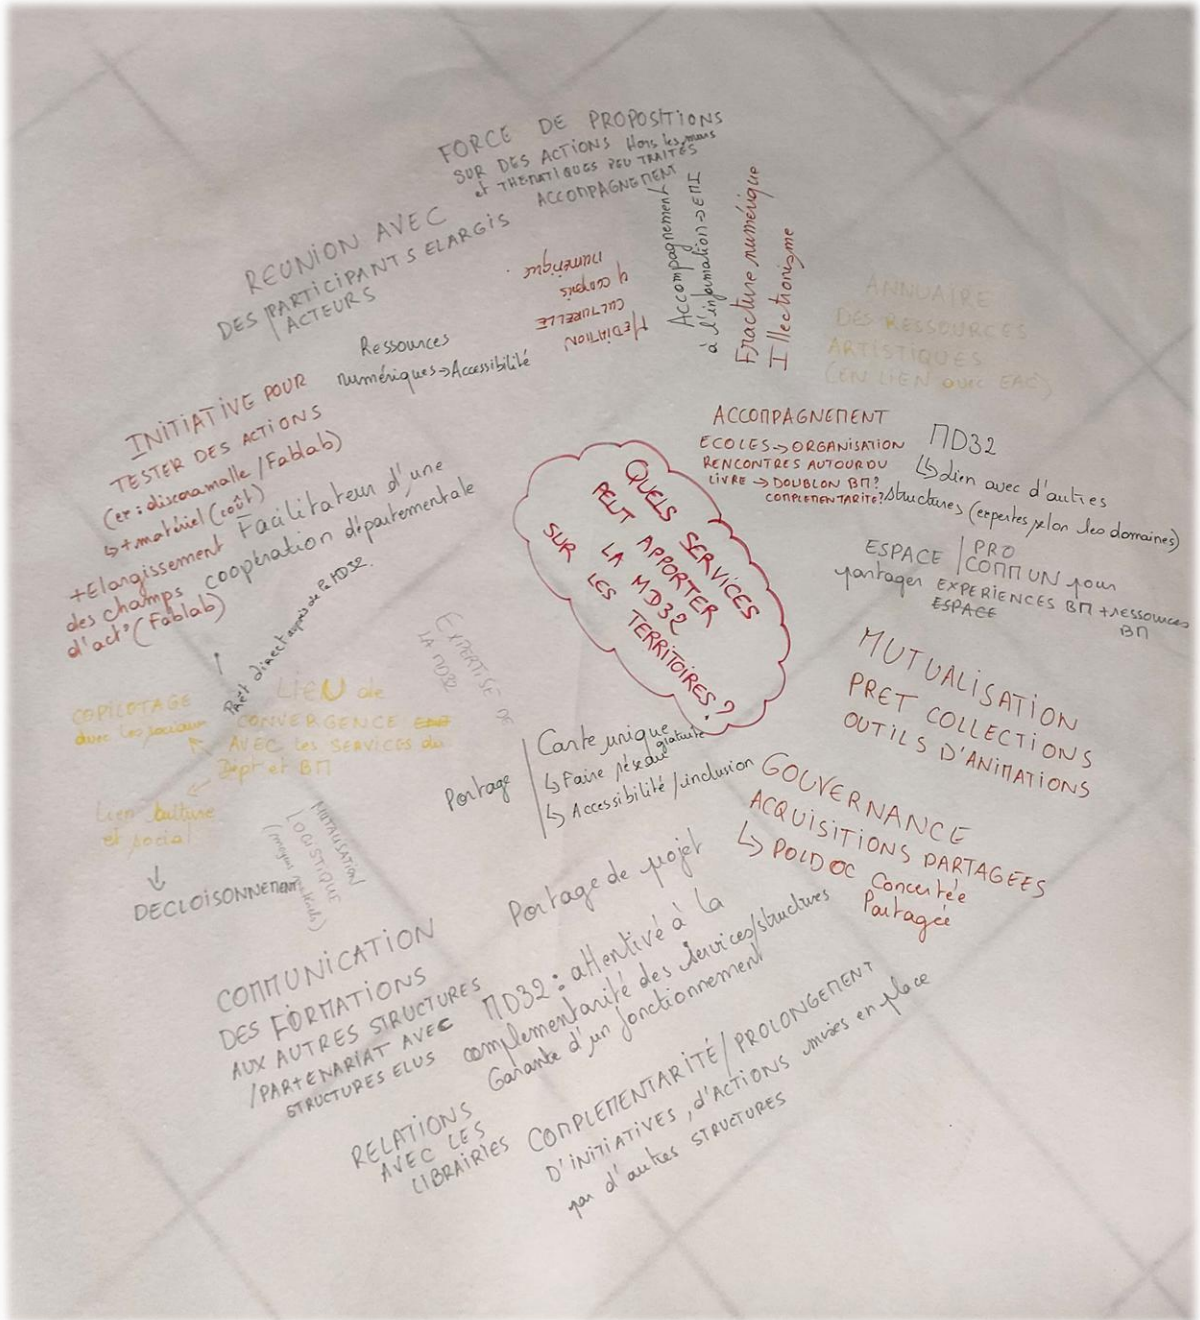 QUELS SERVICES
PEUT APPORTER
LA MD32
SUR LES TERRITOIRES ?
FORCE DE PROPOSITIONS
SUR DES ACTIONS Hors les murs
et THEMATIQUES PEU TRAITÉS
ACCOMPAGNEMENT
REUNION AVEC
DES PARTICIPANTS ELARGIS
ACTEURS
MEDIATION
CULTURELLE
y compris
numérique.
Accompagnement
à l'information → EMI
Fracture numérique
Illectronisme
ANNUAIRE
DES RESSOURCES
ARTISTIQUES
(EN LIEN avec EAC)
Ressources
numériques → Accessibilité
INITIATIVE POUR
TESTER DES ACTIONS
(ex : discomamalle / Fablab)
↳ + matériel (coût)
+ Elargissement
des champs
d'act° (Fablab)
Facilitateur d'une
coopération départementale
Prêt direct auprès de la MD32.
ACCOMPAGNEMENT
ECOLES → ORGANISATION
RENCONTRES AUTOUR DU
LIVRE → DOUBLON BM?
COMPLEMENTARITÉ?
MD32
↳ Lien avec d'autres
structures (expertes selon les domaines)
ESPACE | PRO
COMMUN pour
partager EXPERIENCES BM + ressources
ESPACE BM
MUTUALISATION
PRET COLLECTIONS
OUTILS D'ANIMATIONS
EXPERTISE DE
LA MD32
COPILOTAGE
avec les sociaux
LIEU de
CONVERGENCE
AVEC les SERVICES du
Dept et BM
Lien culture
et social
↓
DECLOISONNEMENT
MUTUALISATION
LOGISTIQUE
Portage
Carte unique
gratuite
↳ Faire réseau
↳ Accessibilité / inclusion
GOUVERNANCE
ACQUISITIONS PARTAGEES
↳ POLDOC Concertée
Partagée
Portage de projet
COMMUNICATION
DES FORMATIONS
AUX AUTRES STRUCTURES
/PARTENARIAT AVEC
STRUCTURES ELUS
MD32 : attentive à la
complementarité des services/structures
Garante d'un fonctionnement
RELATIONS
AVEC LES
LIBRAIRIES
COMPLEMENTARITÉ / PROLONGEMENT
D'INITIATIVES, d'ACTIONS mises en place
par d'autres STRUCTURES